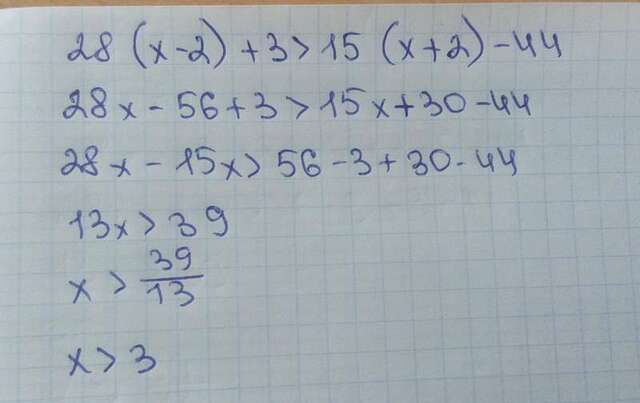 28 (x-2) +3>15 (x+2) -44
28x - 56+3>15x+30-44
28x - 15x> 56-3+30-44
13x > 39
x > 39/13
x > 3